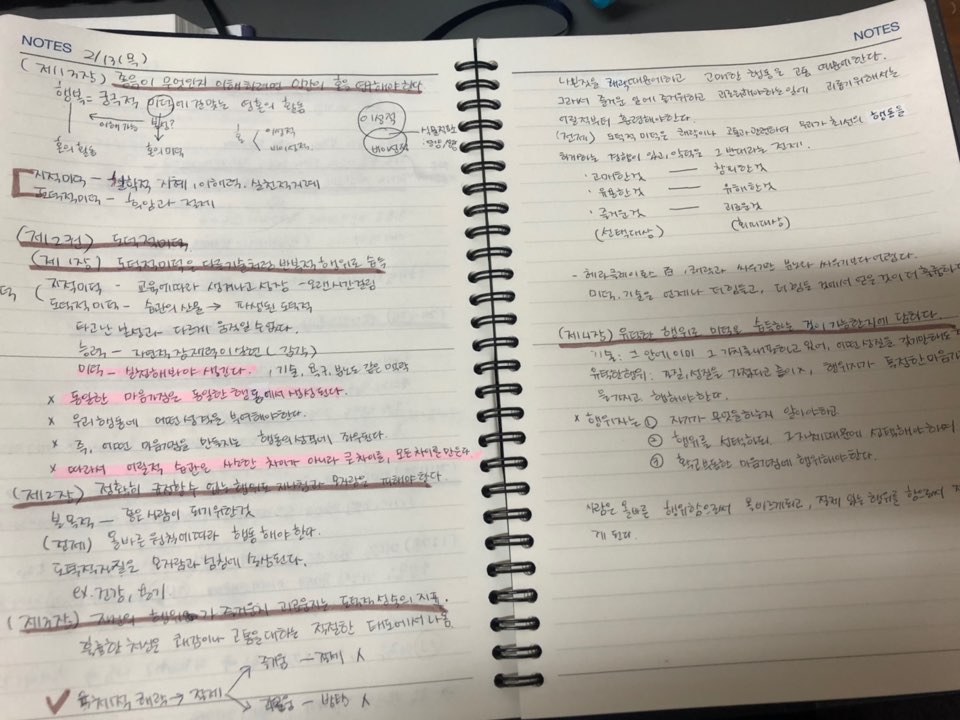 NOTES
2/13(목)
(제13장) 좋음이 무엇인지 이해하려면 인간의 혼을 탐구해야 한다
행복 = 궁극적 미덕에 걸맞는 영혼의 활동
이해가능
혼의 활동
혼의 미덕
혼
이성적
비이성적
이성적
비이성
지적미덕 - 철학적 지혜, 이해력, 실천적지혜
도덕적미덕 - 후함과 절제
(제2권) 도덕적미덕
(제1장) 도덕적미덕은 다른기술처럼 반복적 행위로 습득
지적미덕 - 교육에따라 생겨나고 성장 - 오랜시간경험
도덕적 미덕 - 습관의 산물 → 파생된 도덕적
타고난 본성과 다르게 움직일 수 없다.
능력 - 자연적 잠재력이 발현 (감각)
미덕 - 실천해봐야 생긴다.
x 동일한 마음가짐은 동일한 행동에서 생성된다.
x 우리 행동에 어떤 성질을 부여해야한다.
x 즉, 어떤 마음가짐을 만드는지는 행동의 성격에 좌우된다.
x 따라서 어릴적 습관은 사소한 차이가 아니라 큰 차이를, 모든 차이를 만든다.
(제2장) 정확히 규정할수 없는 행위도 지나침과 모자람은 피해야 한다
본 목적 - 좋은 사람이 되기위한것
(전제) 올바른 원칙에따라 행동 해야 한다.
도덕적자질은 모자람과 넘침에 손상된다.
ex. 건강, 용기
(제3장) 자신의 행위가 즐거운지 괴로운지는 도덕적 성숙의 지표.
훌륭한 처신은 쾌감이나 고통을 대하는 적절한 태도에서 나옴
육체적 쾌락 → 절제
즐거움 - 절제 x
괴로움 - 방탕 x
NOTES
나쁜짓을 쾌락때문에하고 고매한 행동을 고통 때문에 못한다.
그래서 즐거운 일에 즐거워하고 괴로워해야하는일에 괴로워하기 위해서는
어릴적부터 훈련해야한다.
(전제) 도덕적 미덕은 쾌락이나 고통과 관련하여 우리가 최선의 행동을
하게하는 경향이 있고, 악덕은 그 반대라는 전제.
· 고매한것 — 창피한것
· 유용한것 — 유해한것
· 즐거운것 — 괴로운것
(선택대상) (회피대상)
- 헤라클레이토스 曰, 쾌락과 싸우기란 분노와 싸우기보다 어렵다.
미덕, 기술은 언제나 더 힘들고, 더 힘든 것에서 얻은 것이 더 훌륭하다
(제4장) 유덕한 행위로 미덕을 습득하는 것이 가능한지에 답하다.
기술: 그 안에 이미 그 가치를 내포하고 있어, 어떤 성질을 갖기만해도
유덕한행위: 가질, 성질을 가졌다고 좋이 x, 행위자가 특정한 마음가
들 가지고 행해야 한다.
x 행위자는 ① 자기가 무엇을하는지 알아야하고
② 행위를 선택하되, 그 자체 때문에 선택해야 하며
③ 확고부동한 마음가짐에 행위해야 한다.
사람은 올바른 행위함으로써 옳아 게되고, 절제 있는 행위를 함으로써 절
게 된다.